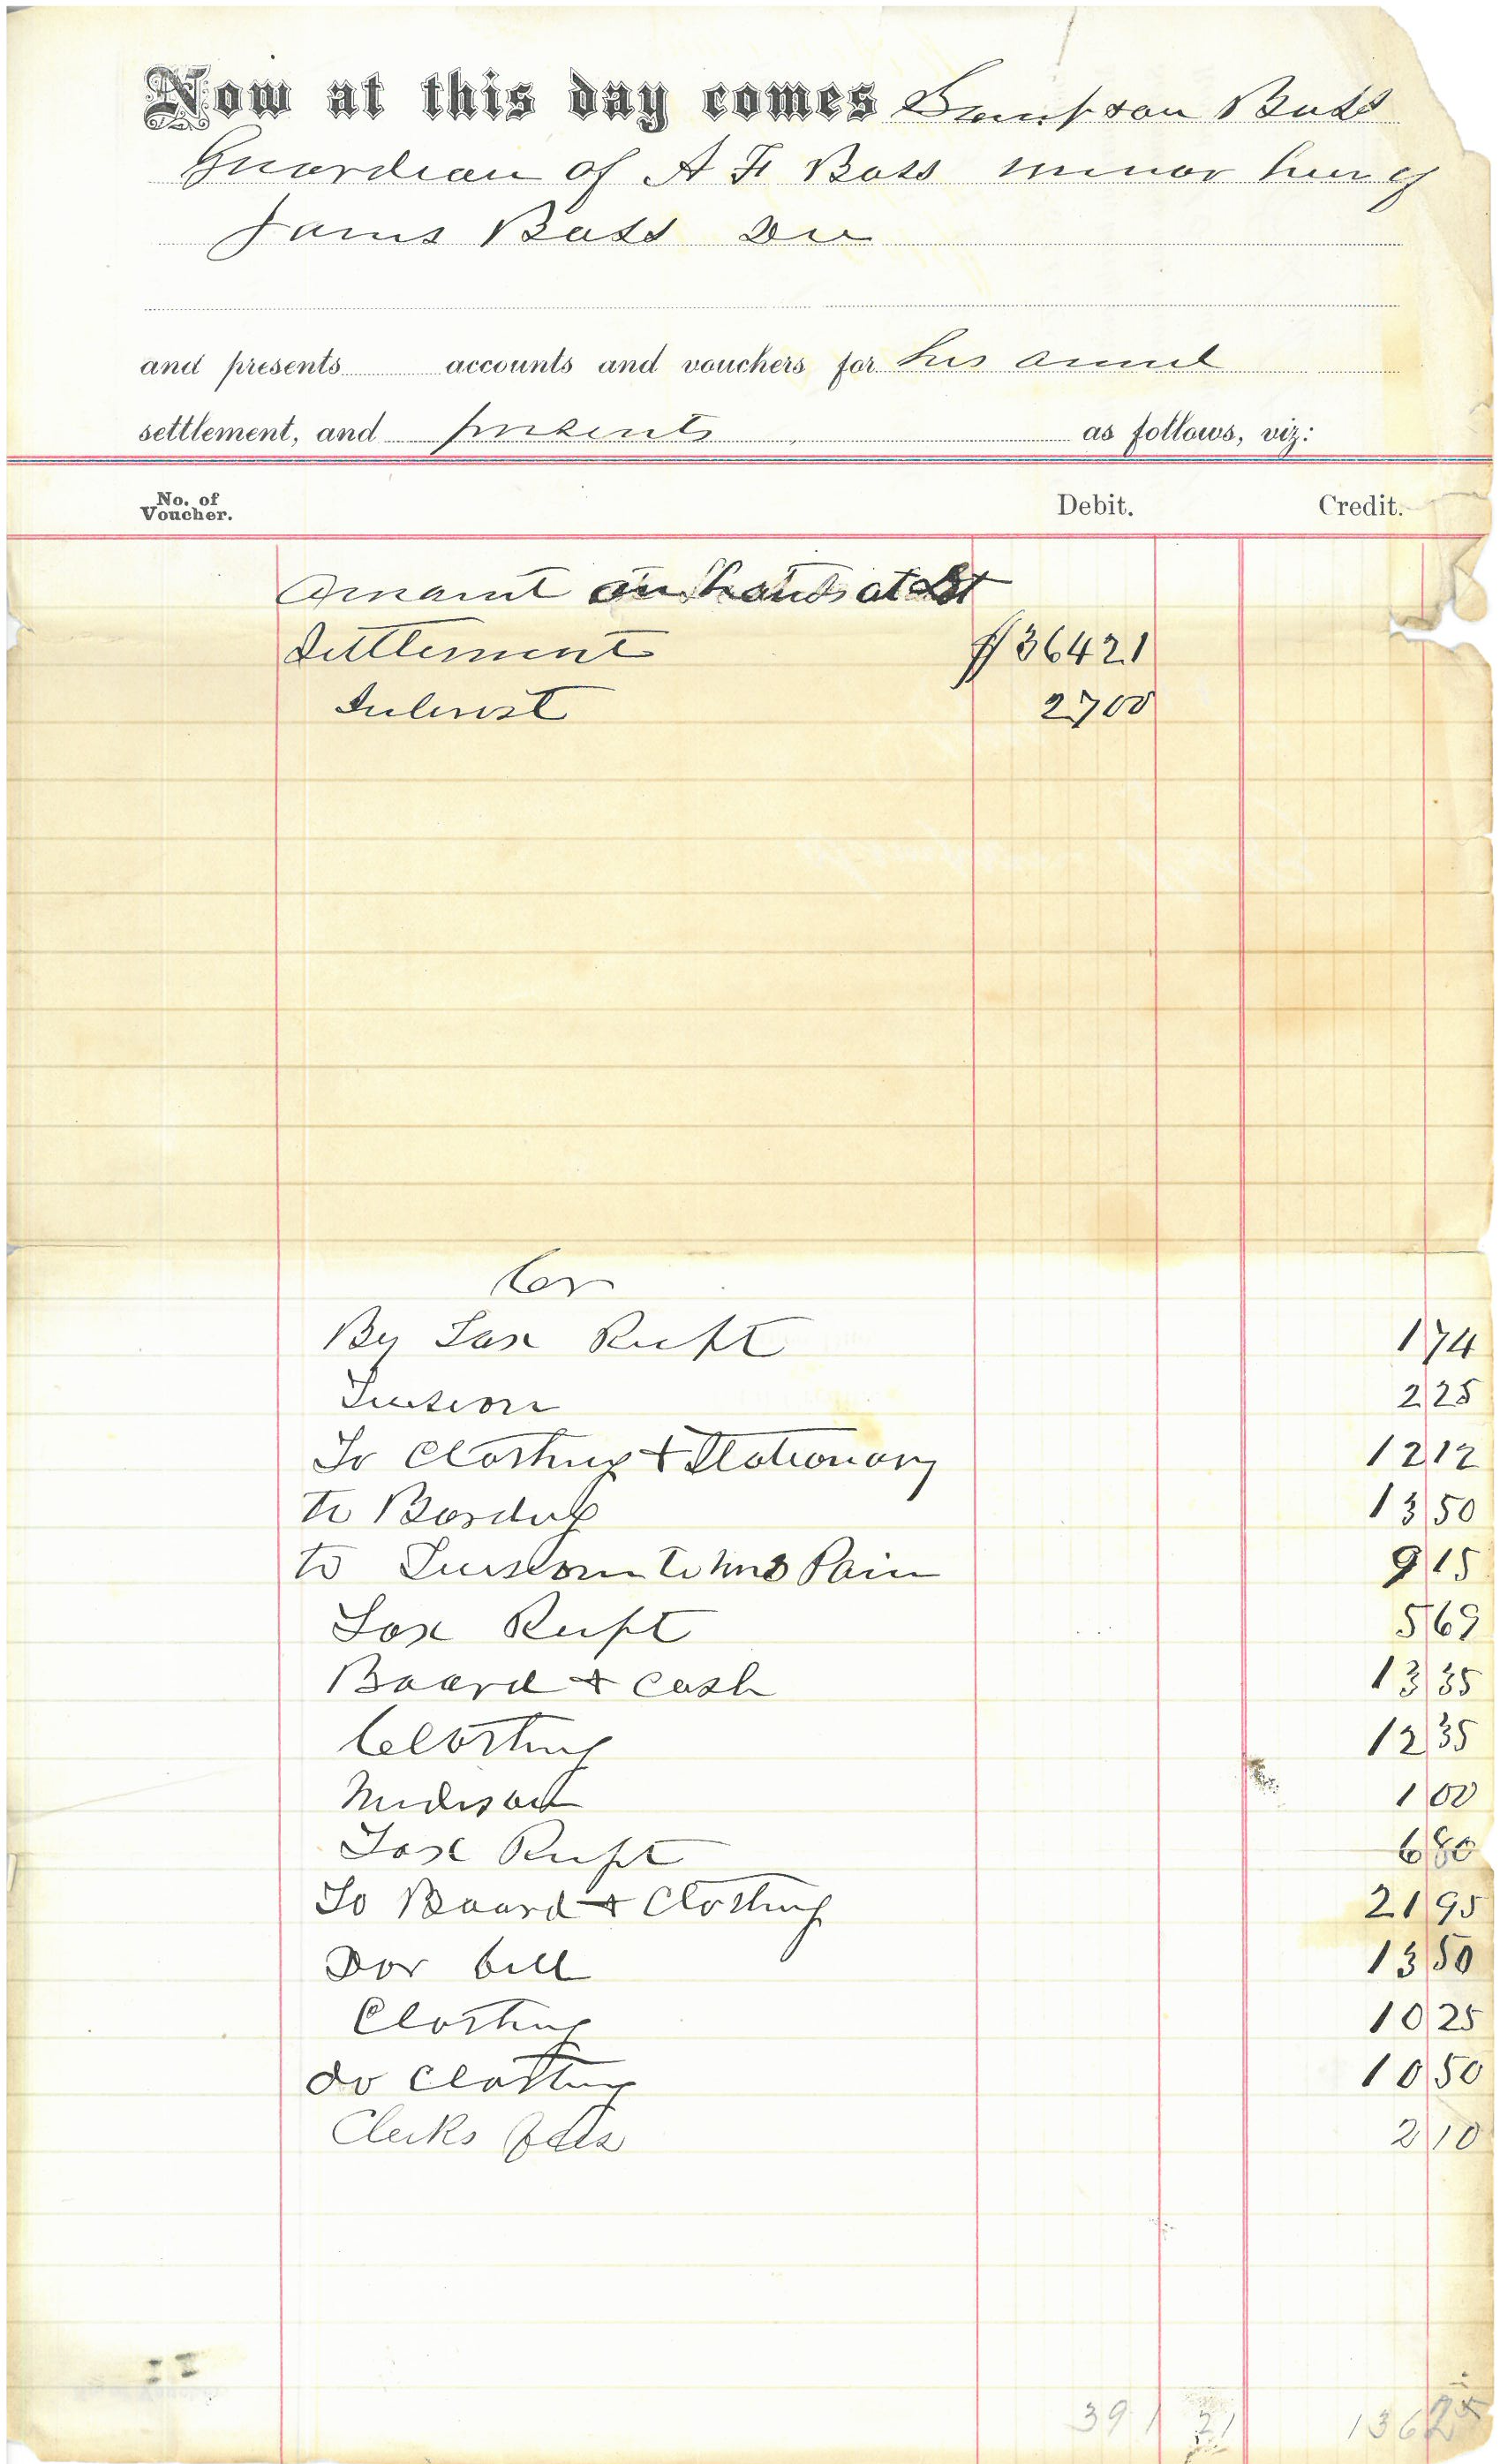 Now at this day comes Sampson Bass
Guardian of A F Bass minor heir of
James Bass Dec
and presents accounts and vouchers for his annul
settlement, and presents as follows, viz:
No. of Voucher. Debit. Credit.
Amount on hands at Lst
Settlement $364 21
Interest 27 00
Cr
By Tax Recpt 1 74
Tuition 2 25
To Clothing & Stationary 12 12
to Bording 13 50
to Tuision to Mrs Pain 9 15
Tax Recpt 5 69
Board & cash 13 35
Clothing 12 35
Medison 1 00
Tax Recpt 6 80
To Board & Clothing 21 95
Dor bill 13 50
Clothing 10 25
do Clothing 10 50
Clerks fees 2 10
391 21 136 25